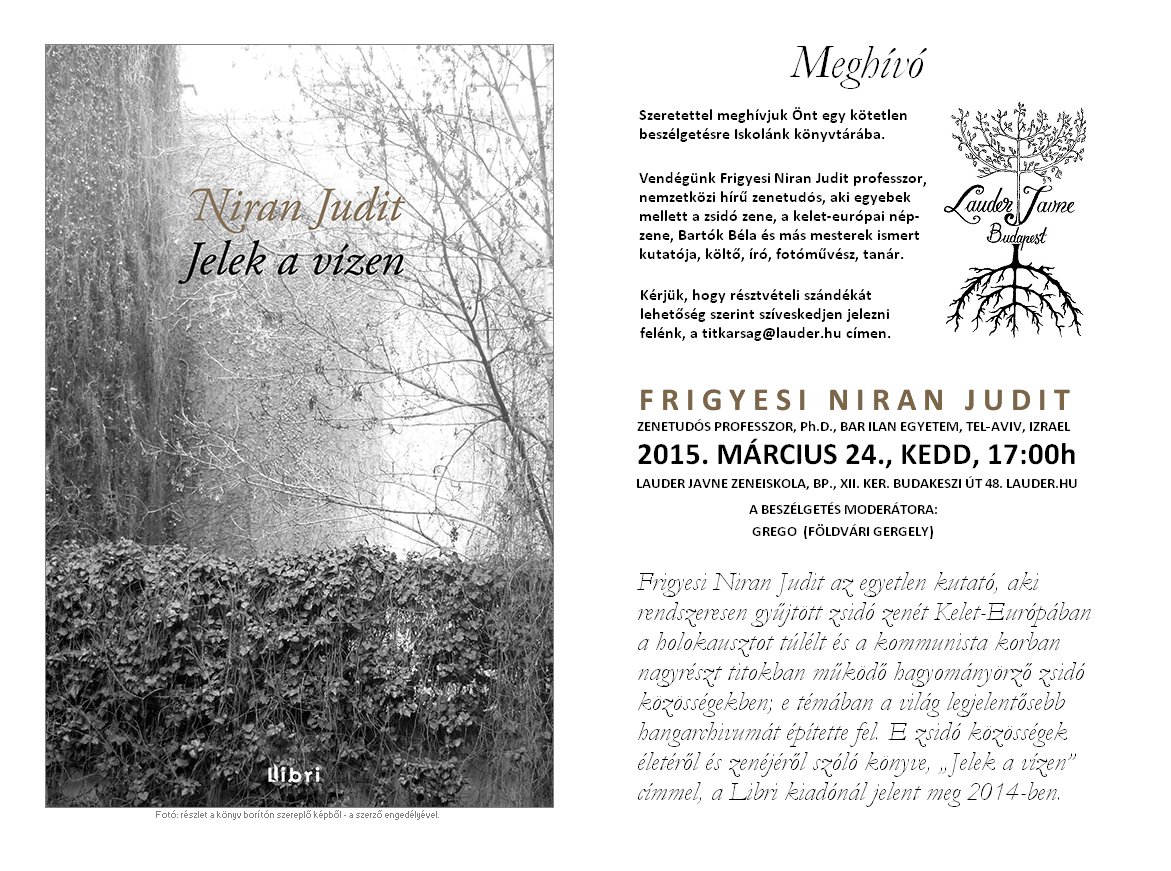 Niran Judit
Jelek a vízen
Libri
Fotó: részlet a könyv borítón szereplő képből - a szerző engedélyével.
Meghívó
Szeretettel meghívjuk Önt egy kötetlen
beszélgetésre Iskolánk könyvtárába.
Vendégünk Frigyesi Niran Judit professzor,
nemzetközi hírű zenetudós, aki egyebek
mellett a zsidó zene, a kelet-európai nép-
zene, Bartók Béla és más mesterek ismert
kutatója, költő, író, fotóművész, tanár.
Kérjük, hogy résztvételi szándékát
lehetőség szerint szíveskedjen jelezni
felénk, a titkarsag@lauder.hu címen.
Lauder Javne
Budapest
FRIGYESI NIRAN JUDIT
ZENETUDÓS PROFESSZOR, Ph.D., BAR ILAN EGYETEM, TEL-AVIV, IZRAEL
2015. MÁRCIUS 24., KEDD, 17:00h
LAUDER JAVNE ZENEISKOLA, BP., XII. KER. BUDAKESZI ÚT 48. LAUDER.HU
A BESZÉLGETÉS MODERÁTORA:
GREGO (FÖLDVÁRI GERGELY)
Frigyesi Niran Judit az egyetlen kutató, aki
rendszeresen gyűjtött zsidó zenét Kelet-Európában
a holokausztot túlélt és a kommunista korban
nagyrészt titokban működő hagyományörző zsidó
közösségekben; e témában a világ legjelentősebb
hangarchivumát építette fel. E zsidó közösségek
életéről és zenéjéről szóló könyve, „Jelek a vízen”
címmel, a Libri kiadónál jelent meg 2014-ben.